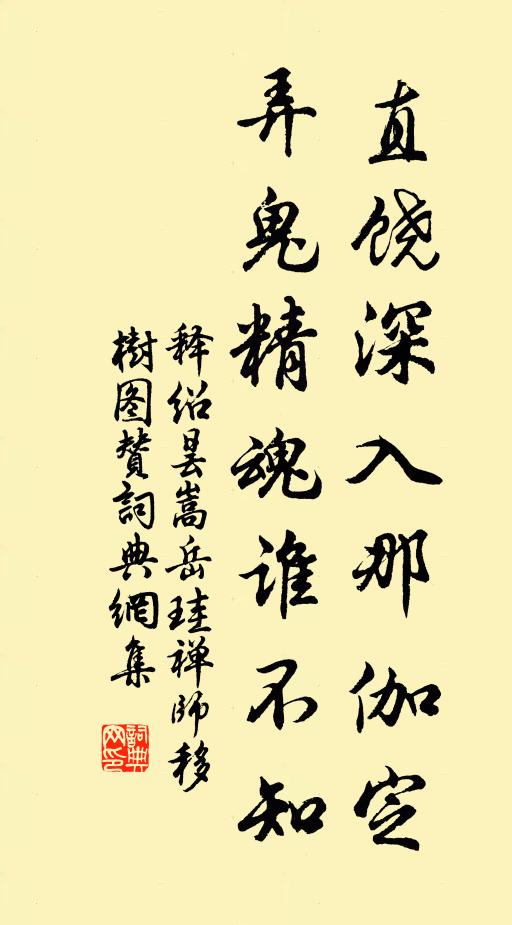 直饶深入那伽定
弄鬼精魂谁不知
释绍昙嵩岳珪禅师移
樹图赞詞典網集
詞典网印